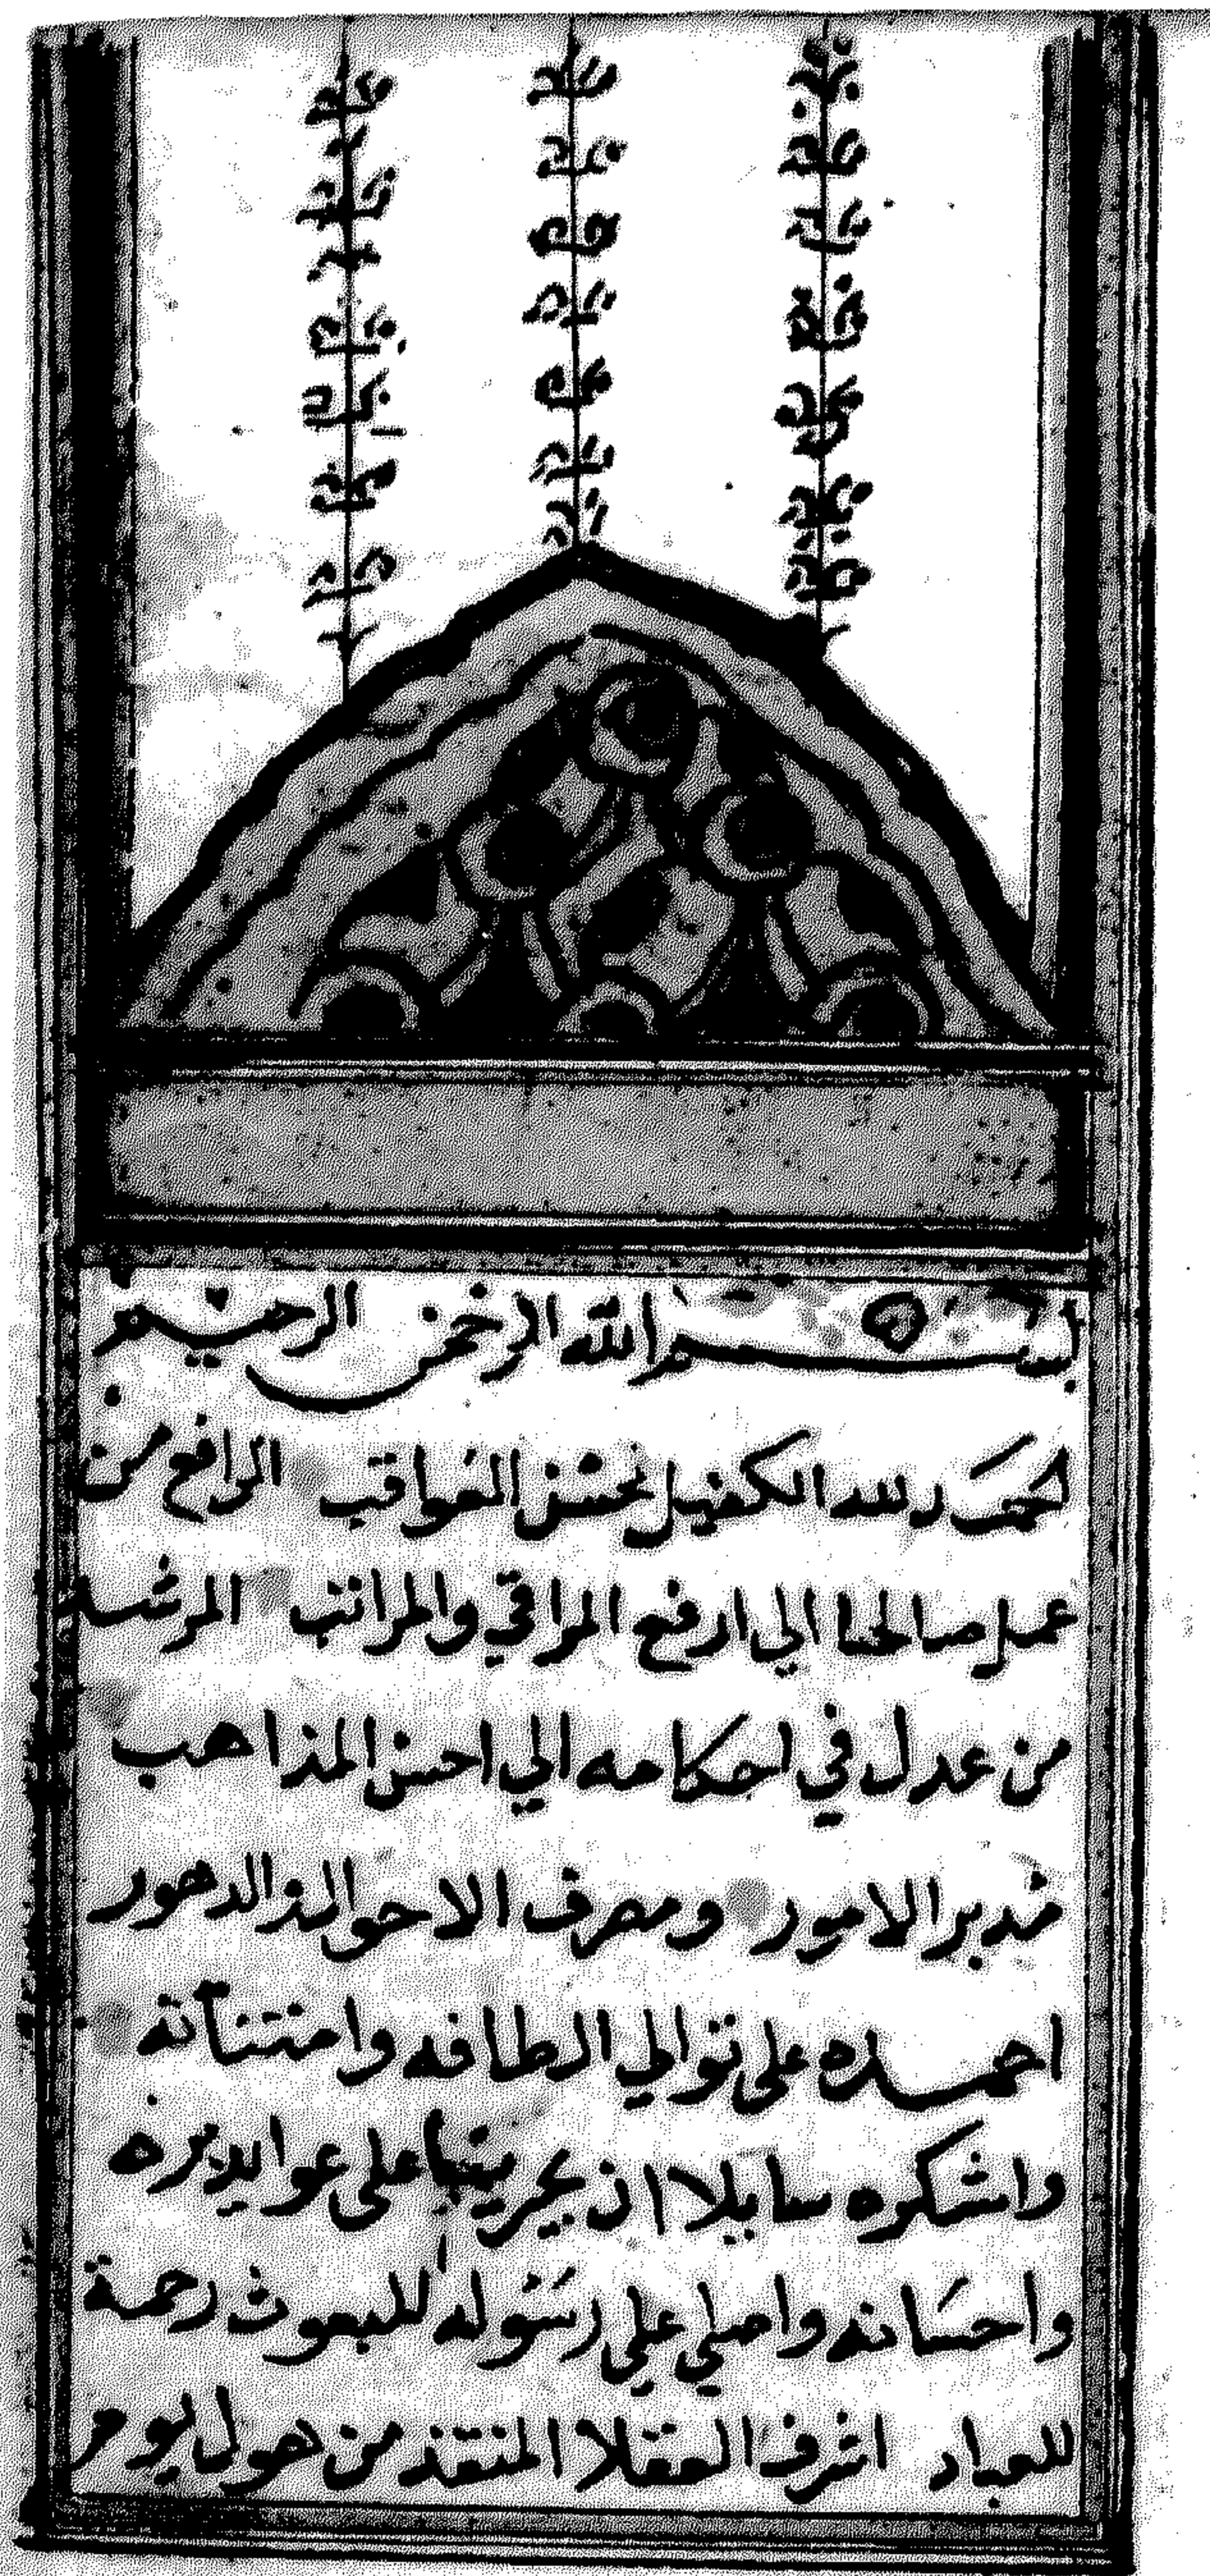 بسم الله الرحمن الرحيم
الحمد لله الكفيل بحسن العواقب الرافع من
عمل صالحا الي ارفع المراقي والمراتب المرشد
من عدل في احكامه الي احسن المذاهب
مدبر الامور ومصرف الاحوال والدهور
احمده على توالي الطافه وامتنانه
واشكره سايلا ان يجرينا على عوايد بره
واحسانه واصلي علي رسوله المبعوث رحمة
للعباد اشرف العقلا المنقذ من هول يوم